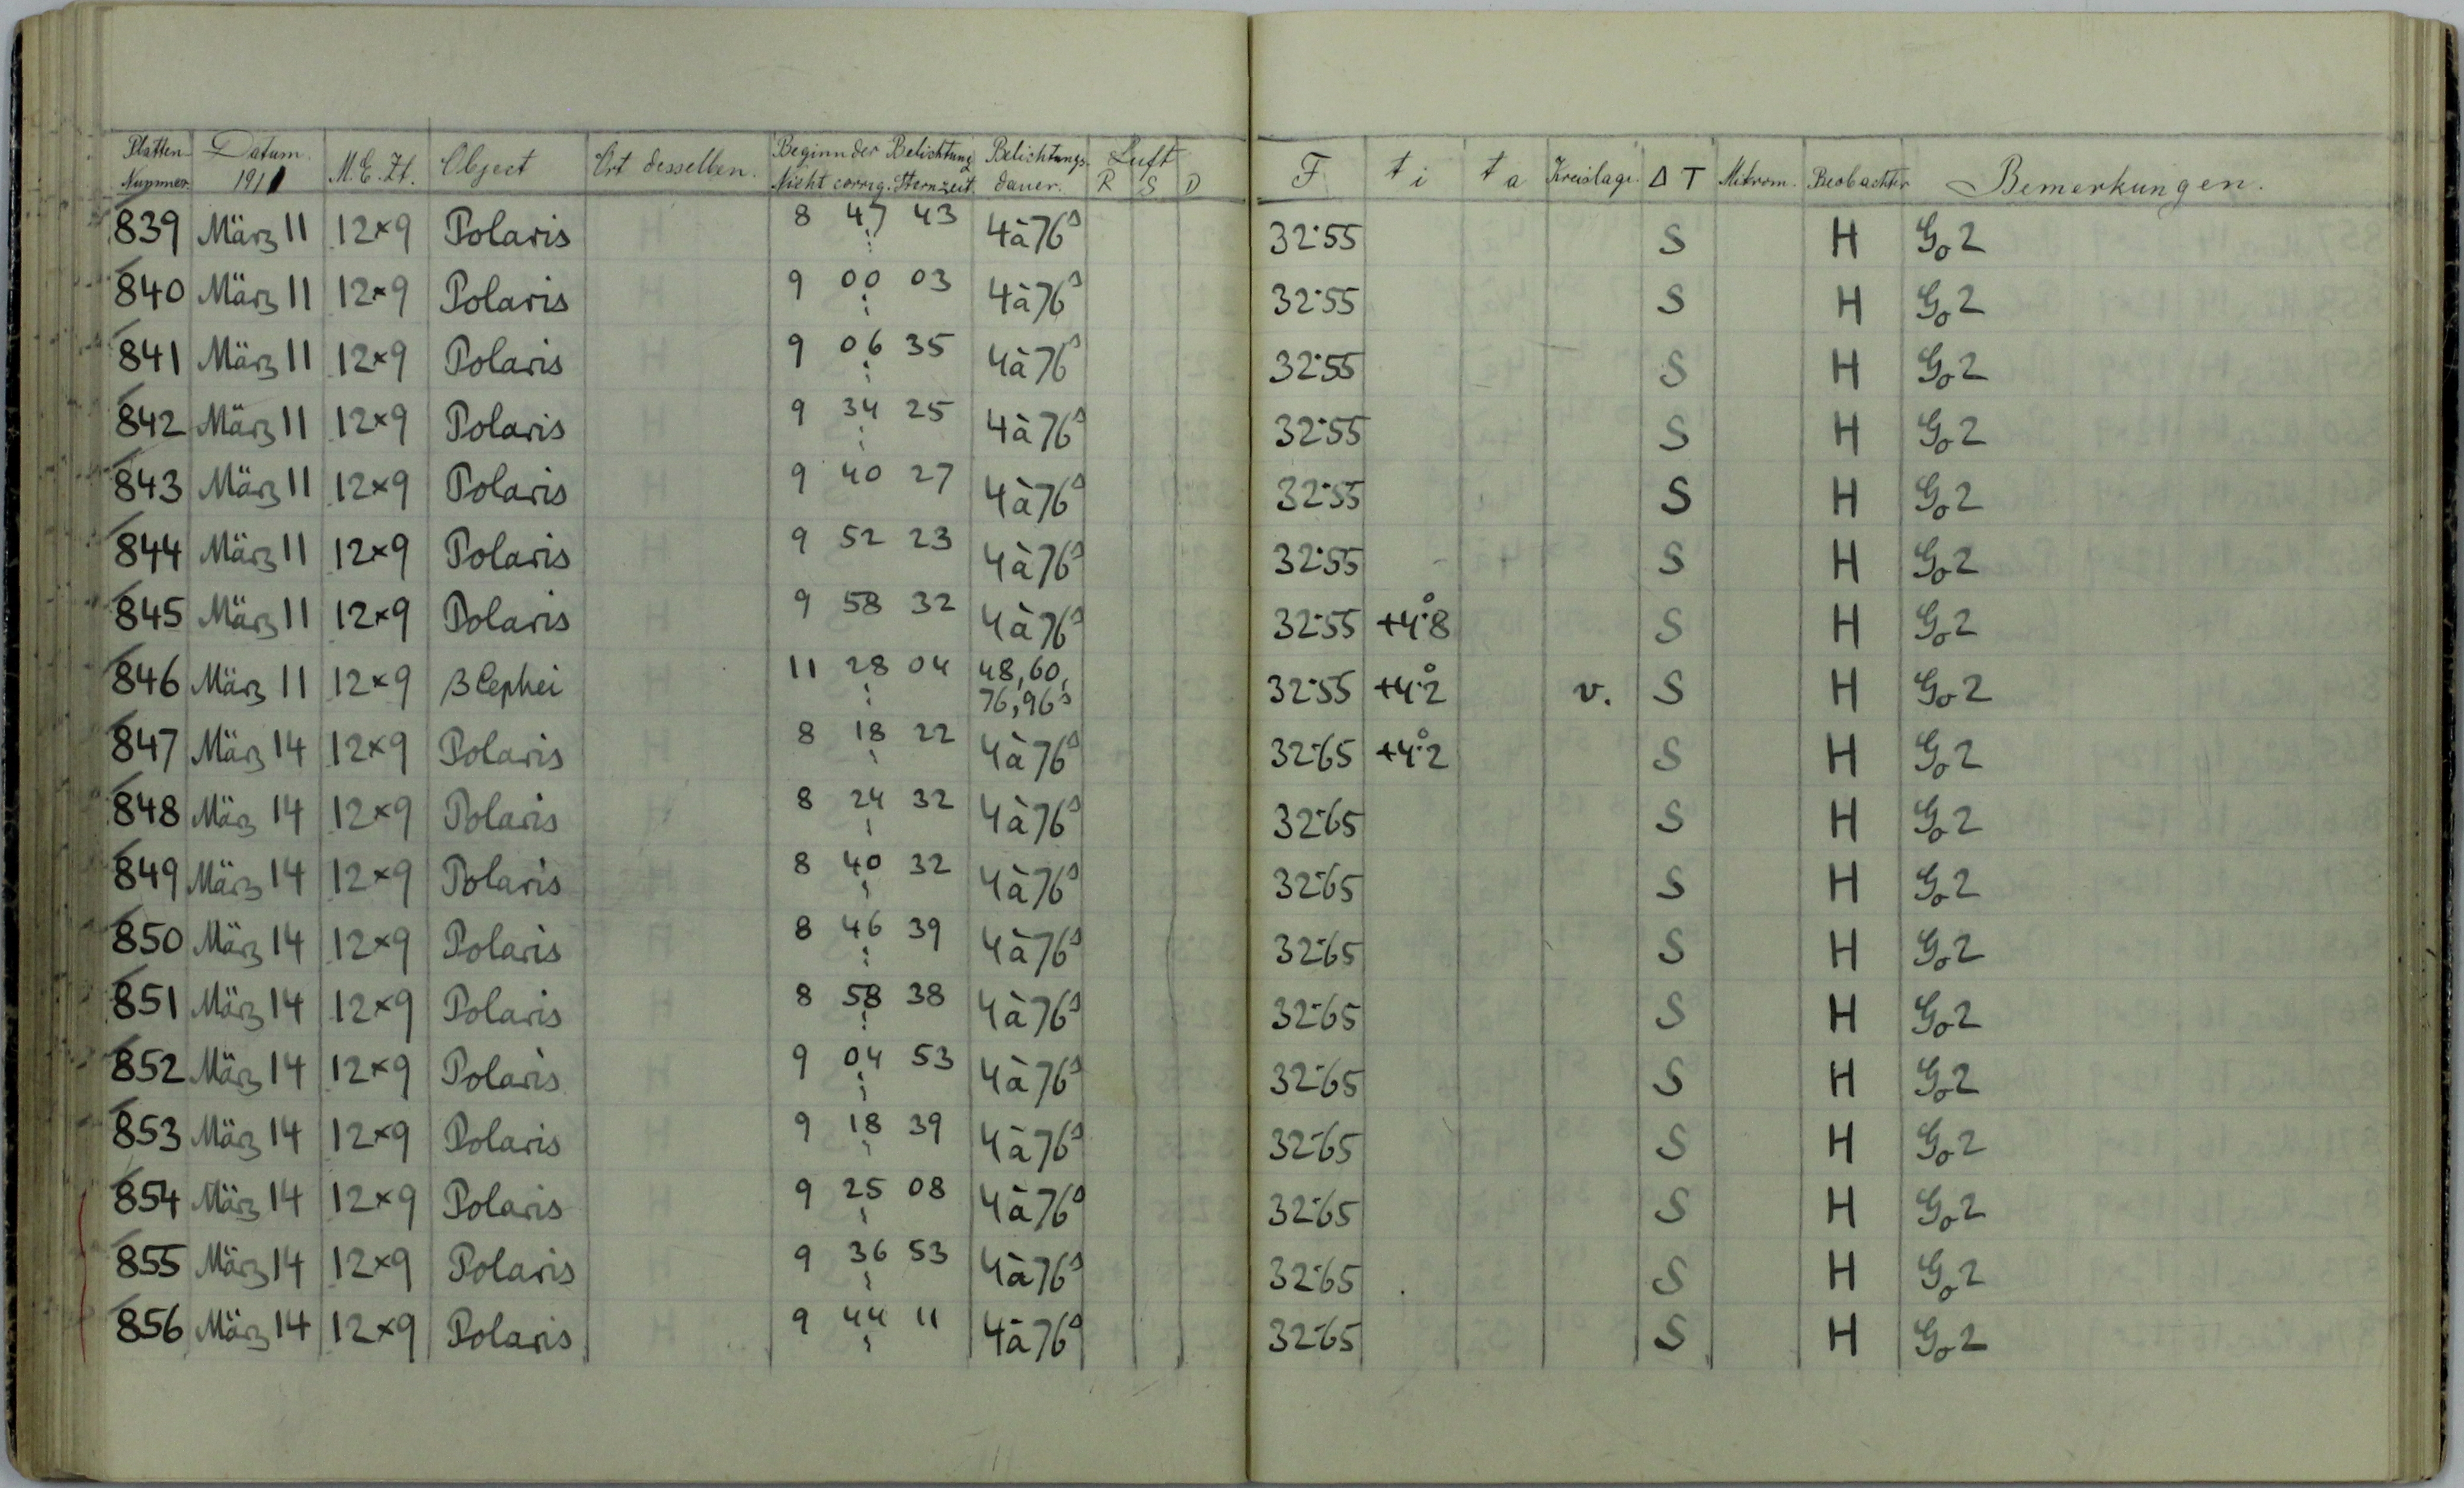 Platten Nummer. Datum. 1911 M.E.Zt. Object Ort desselben. Beginn der Belichtung Nicht corrig. Sternzeit. Belichtungsdauer. Luft R S D F t i t a Kreislage. Δ T Mikrom. Beobachter Bemerkungen.
839 März 11 12×9 Polaris 8 47 43 4à76s 32·55 S H Go 2
840 März 11 12×9 Polaris 9 00 03 4à76s 32·55 S H Go 2
841 März 11 12×9 Polaris 9 06 35 4à76s 32·55 S H Go 2
842 März 11 12×9 Polaris 9 34 25 4à76s 32·55 S H Go 2
843 März 11 12×9 Polaris 9 40 27 4à76s 32·55 S H Go 2
844 März 11 12×9 Polaris 9 52 23 4à76s 32·55 S H Go 2
845 März 11 12×9 Polaris 9 58 32 4à76s 32·55 +4°.8 S H Go 2
846 März 11 12×9 β Cephei 11 28 04 48, 60, 76, 96s 32·55 +4°.2 v. S H Go 2
847 März 14 12×9 Polaris 8 18 22 4à76s 32·65 +4°.2 S H Go 2
848 März 14 12×9 Polaris 8 24 32 4à76s 32·65 S H Go 2
849 März 14 12×9 Polaris 8 40 32 4à76s 32·65 S H Go 2
850 März 14 12×9 Polaris 8 46 39 4à76s 32·65 S H Go 2
851 März 14 12×9 Polaris 8 58 38 4à76s 32·65 S H Go 2
852 März 14 12×9 Polaris 9 04 53 4à76s 32·65 S H Go 2
853 März 14 12×9 Polaris 9 18 39 4à76s 32·65 S H Go 2
854 März 14 12×9 Polaris 9 25 08 4à76s 32·65 S H Go 2
855 März 14 12×9 Polaris 9 36 53 4à76s 32·65 S H Go 2
856 März 14 12×9 Polaris 9 44 11 4à76s 32·65 S H Go 2